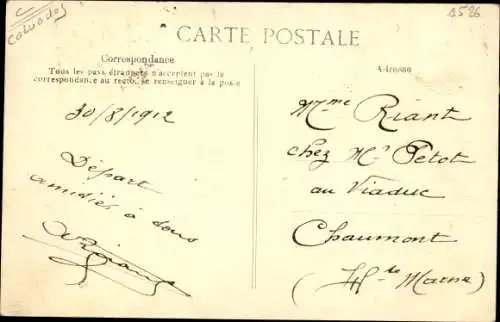 Calvados
1526
CARTE POSTALE
Correspondance
Tous les pays étrangers n'acceptent pas la
correspondance au recto, se renseigner à la poste
Adresse
30/8/1912
Départ
amitiés à tous
Mme Riant
chez Mr Petot
au Viaduc
Chaumont
(Hte Marne)